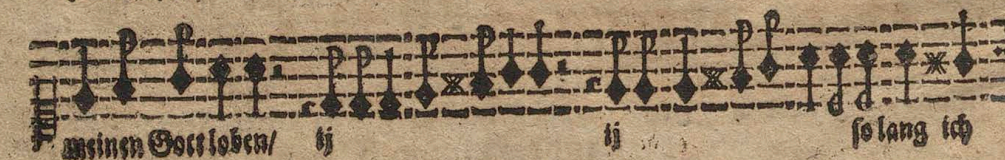 meinen Gott loben/ ij ij so lang ich